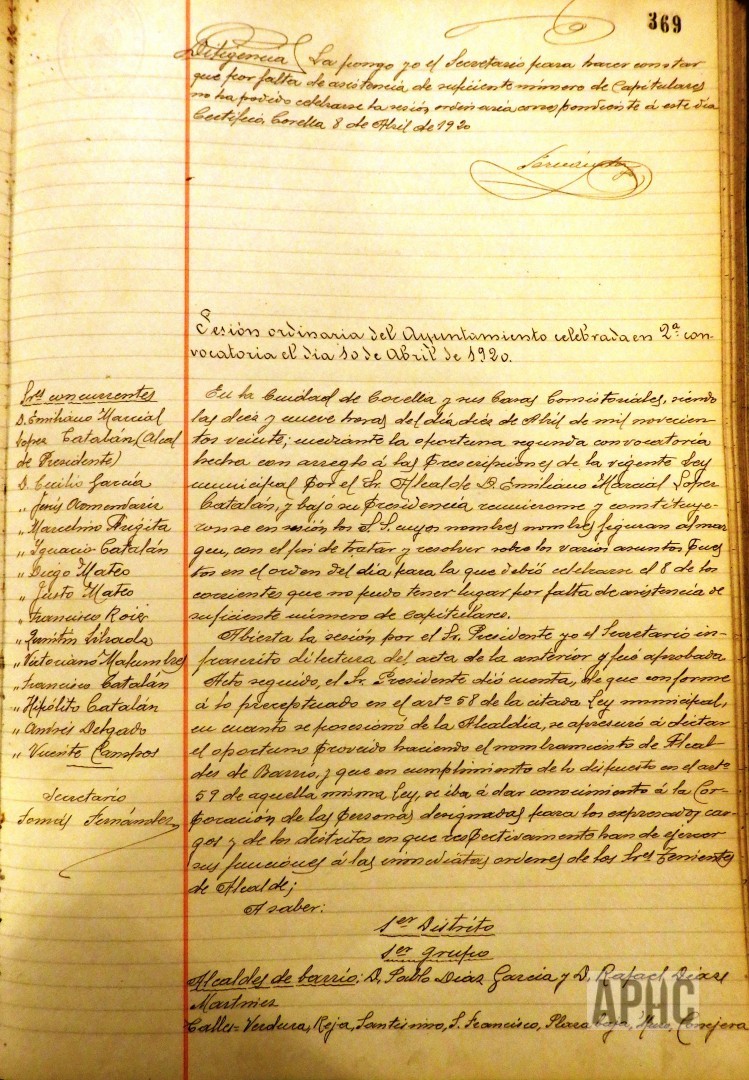 369
Diligencia / La pongo yo el Secretario para hacer constar
que por falta de asistencia de suficiente número de Capitulares
no ha podido celebrarse la sesión ordinaria correspondiente á este día
Certifico, Corella 8 de Abril de 1920
Fernández
Sesión ordinaria del Ayuntamiento celebrada en 2ª con-
vocatoria el dia 10 de Abril de 1920.
Sres concurrentes
D. Emiliano Marcial
Lopez Catalán (Alcal
de Presidente)
D. Cecilio García
„ Jesús Armendariz
„ Marcelino Augita
„ Ignacio Catalán
„ Diego Mateo
„ Justo Mateo
„ Francisco
„ Quintin
„ Victoriano
„ Francisco Catalán
„ Hipólito Catalán
„ Andrés Delgado
„ Vicente Campos
Secretario
Tomás Fernández
En la Ciudad de Corella y sus Casas Consistoriales, siendo
las diez y nueve horas del día diez de Abril de mil novecien-
tos veinte; mediante la oportuna segunda convocatoria
hecha con arreglo á las prescripciones de la vigente Ley
municipal por el Sr. Alcalde D. Emiliano Marcial Lopez
Catalán, y bajo su Presidencia reunieronse y constituye-
ronse en sesión los S.S. cuyos nombres nombres figuran al mar
gen, con el fin de tratar y resolver sobre los varios asuntos pues-
tos en el orden del día para la que debió celebrarse el 8 de los
corrientes que no pudo tener lugar por falta de asistencia de
suficiente número de capitulares.
Abierta la sesión por el Sr. Presidente yo el Secretario in-
frascrito di lectura del acta de la anterior y fué aprobada
Acto seguido, el Sr. Presidente dió cuenta, de que conforme
á lo preceptuado en el artº 58 de la citada Ley municipal,
en cuanto se posesionó de la Alcaldía, se apresuró á dictar
el oportuno proveido haciendo el nombramiento de Alcal
des de Barrio, y que en cumplimiento de lo dispuesto en el artº
59 de aquella misma Ley, se iba á dar conocimiento á la Cor-
poración de las personas designadas para los expresados car-
gos y de los distritos en que respectivamente han de ejercer
sus funciones á las inmediatas ordenes de los Sres Tenientes
de Alcalde;
A saber:
1er Distrito
1er grupo
Alcaldes de barrio; D. Pablo Diaz Garcia y D. Rafael Diaz
Martinez
Calles= Verdura, Reja, Santisimo, S. Francisco, Plaza Conejera
APHC